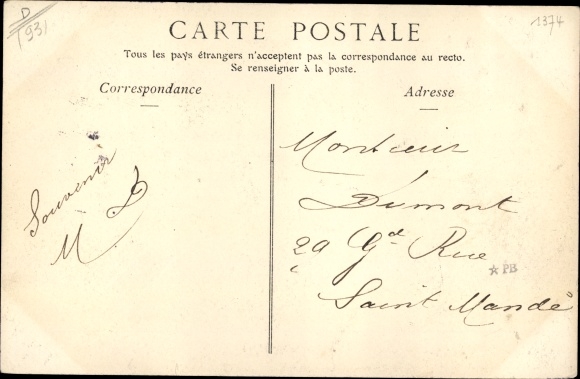 D
(93)
1374
CARTE POSTALE
Tous les pays étrangers n'acceptent pas la correspondance au recto.
Se renseigner à la poste.
Correspondance
Adresse
Souvenir
M D
Monsieur
Dumont
29 Gde Rue
Saint Mandé
★ PB